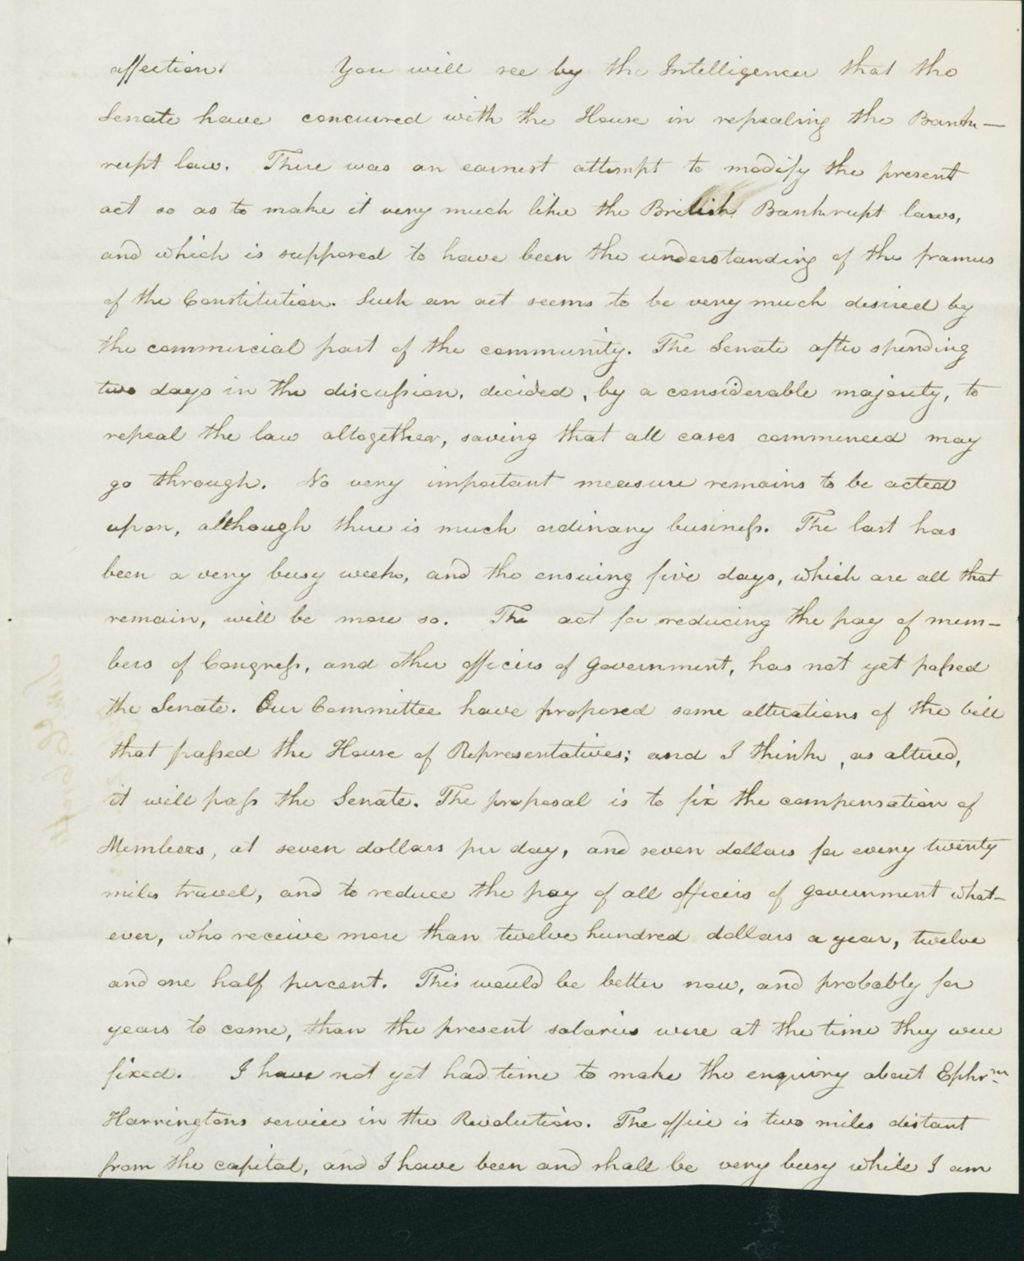 affection. You will see by the Intelligencer that the
Senate have concurred with the House in repealing the Bank-
rupt law. There was an earnest attempt to modify the present
act so as to make it very much like the British Bankrupt laws,
and which is supposed to have been the understanding of the framers
of the Constitution. Such an act seems to be very much desired by
the commercial part of the community. The Senate after spending
two days in the discussion, decided, by a considerable majority, to
repeal the law altogether, saving that all cases commenced may
go through. No very important measure remains to be acted
upon, although there is much ordinary business. The last has
been a very busy week, and the ensuing five days, which are all that
remain, will be more so. The act for reducing the pay of mem-
bers of Congress, and other officers of government, has not yet passed
the Senate. Our Committee have proposed some alterations of the bill
that passed the House of Representatives; and I think, as altered,
it will pass the Senate. The proposal is to fix the compensation of
Members, at seven dollars per day, and seven dollars for every twenty
miles travel, and to reduce the pay of all officers of government what-
ever, who receive more than twelve hundred dollars a year, twelve
and one half percent. This would be better now, and probably for
years to come, than the present salaries were at the time they were
fixed. I have not yet had time to make the enquiry about Ephrm
Harringtons service in the Revolution. The office is two miles distant
from the capital, and I have been and shall be very busy while I am